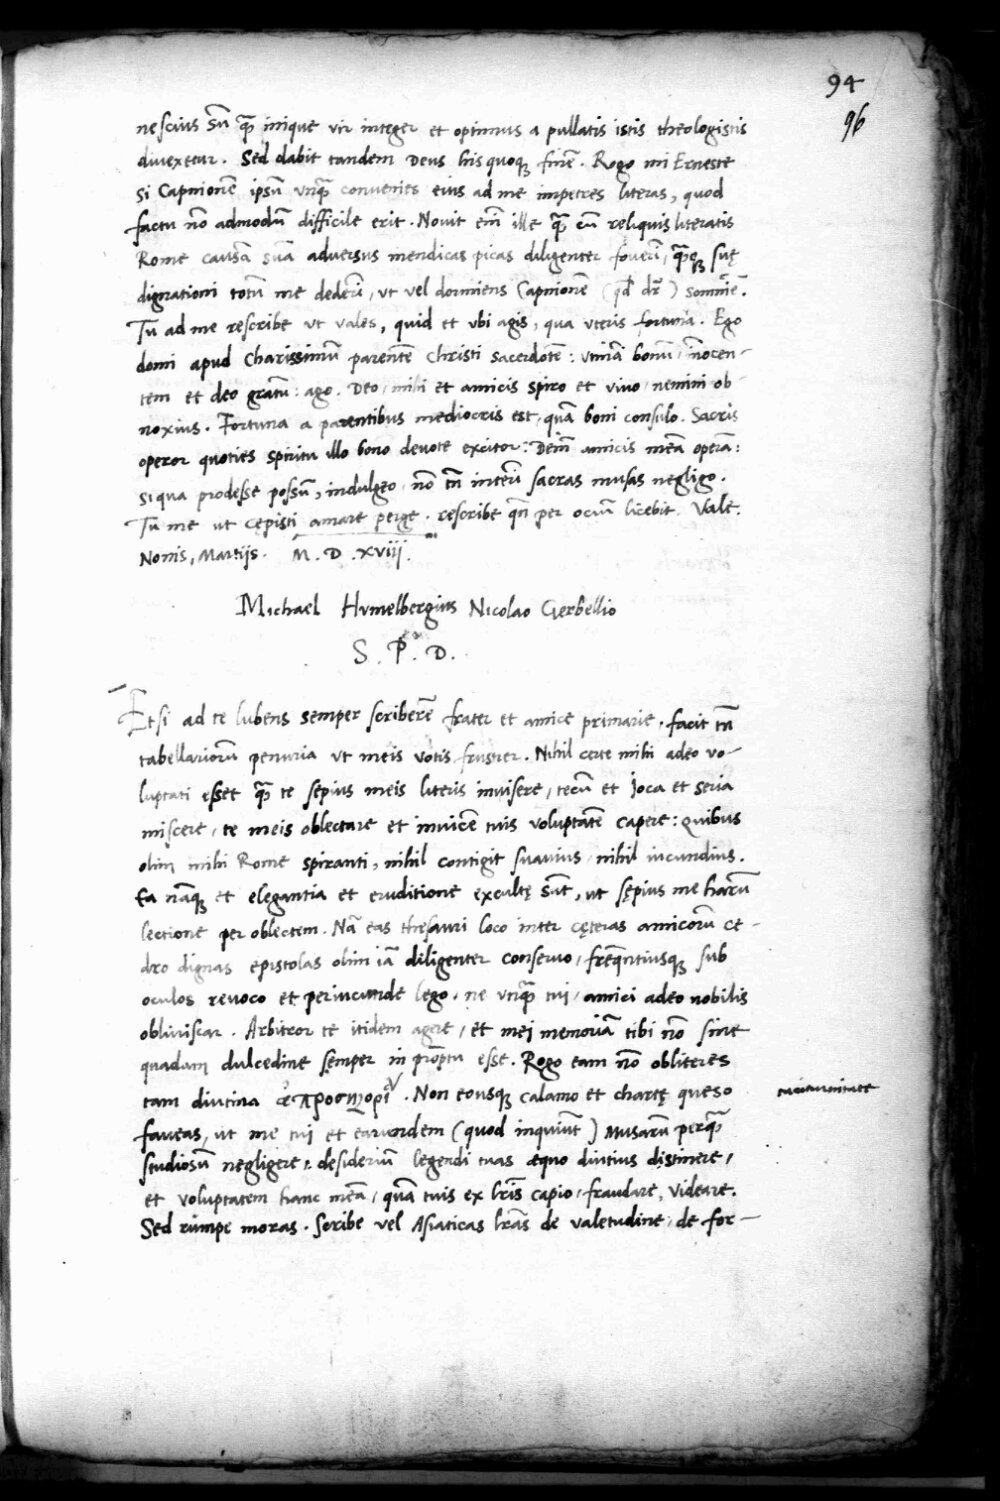 94
96
nescius sũ q̃ inique vir integer et optimus a pullatis istis theologistis
divexetur. Sed dabit tandem Deus his quoqꝫ finẽ. Rogo mi Erneste
si Capnionẽ ipsũ vnq̃ convenies eius ad me impetres literas, quod
factu nõ admodũ difficile erit. Novit em̃ ille q̃ cũ reliquis literatis
Rome causã suã adversus mendicas picas diligenter foverĩ, q̃qꝫ suę
dignationi totũ me dederĩ, ut vel dormiens Capnionẽ (qđ dr̃) somniẽ.
Tu ad me rescribe ut vales, quid et ubi agis, qua uteris fortuna. Ego
domi apud Charissimũ parentẽ Christi sacerdotẽ: utinã bonũ, inocen-
tem et deo gratũ: ago. Deo, mihi et amicis spiro et vivo, nemini ob-
noxius. Fortuna a parentibus mediocris est, quã boni consulo. Sacris
operor quoties spiritu illo bono devote excitor: Dein̄ amicis meã operã:
si qua prodesse possũ, indulgeo, nõ tñ interĩ sacras musas negligo.
Tu me ut cępisti amare perge. rescribe qñ per ociũ licebit. Vale.
Nonis, Martijs. M. D. xviij.
Michael Humelbergius Nicolao Gerbellio
S. P. D.
Etsi ad te lubens semper scriberẽ frater et amice primarie, facit tñ
tabellariorũ penuria ut meis votis frustrer. Nihil certe mihi adeo vo-
luptati esset q̃ te sępius meis literis invisere, tecũ et Joca et seria
miscere, te meis oblectare et invicẽ tuis voluptatẽ capere: quibus
olim mihi Rome spiranti, nihil contigit suavius, nihil iucundius.
Ea nãqꝫ et elegantia et eruditione excultę sũt, ut sępius me harũ
lectione per oblectem. Nã eas thesauri loco inter cęteras amicorũ ce-
dro dignas epistolas olim iã diligenter conservo, freq̃ntiusqꝫ sub
oculos revoco et periucunde lego, ne unq̃ tui, amici adeo nobilis
obliviscar. Arbitror te itidem agere, et mei memoriã tibi nõ sine
quadam dulcedine semper in prõptu esse. Rogo eam nõ obliteres
tam diutina ἀπροσηγορί͂. Non eousqꝫ calamo et chartę queso
taciturnitate
faveas, ut me tui et earundem (quod inquiũt) Musarũ perq̃
studiosũ negligere, desideriũ legendi tuas æquo diutius distinere,
et voluptatem hanc meã, quã tuis ex lr̃is capio, fraudare, videare.
Sed rũmpe moras. Scribe vel Asiaticas lr̃as de valetudine, de for-